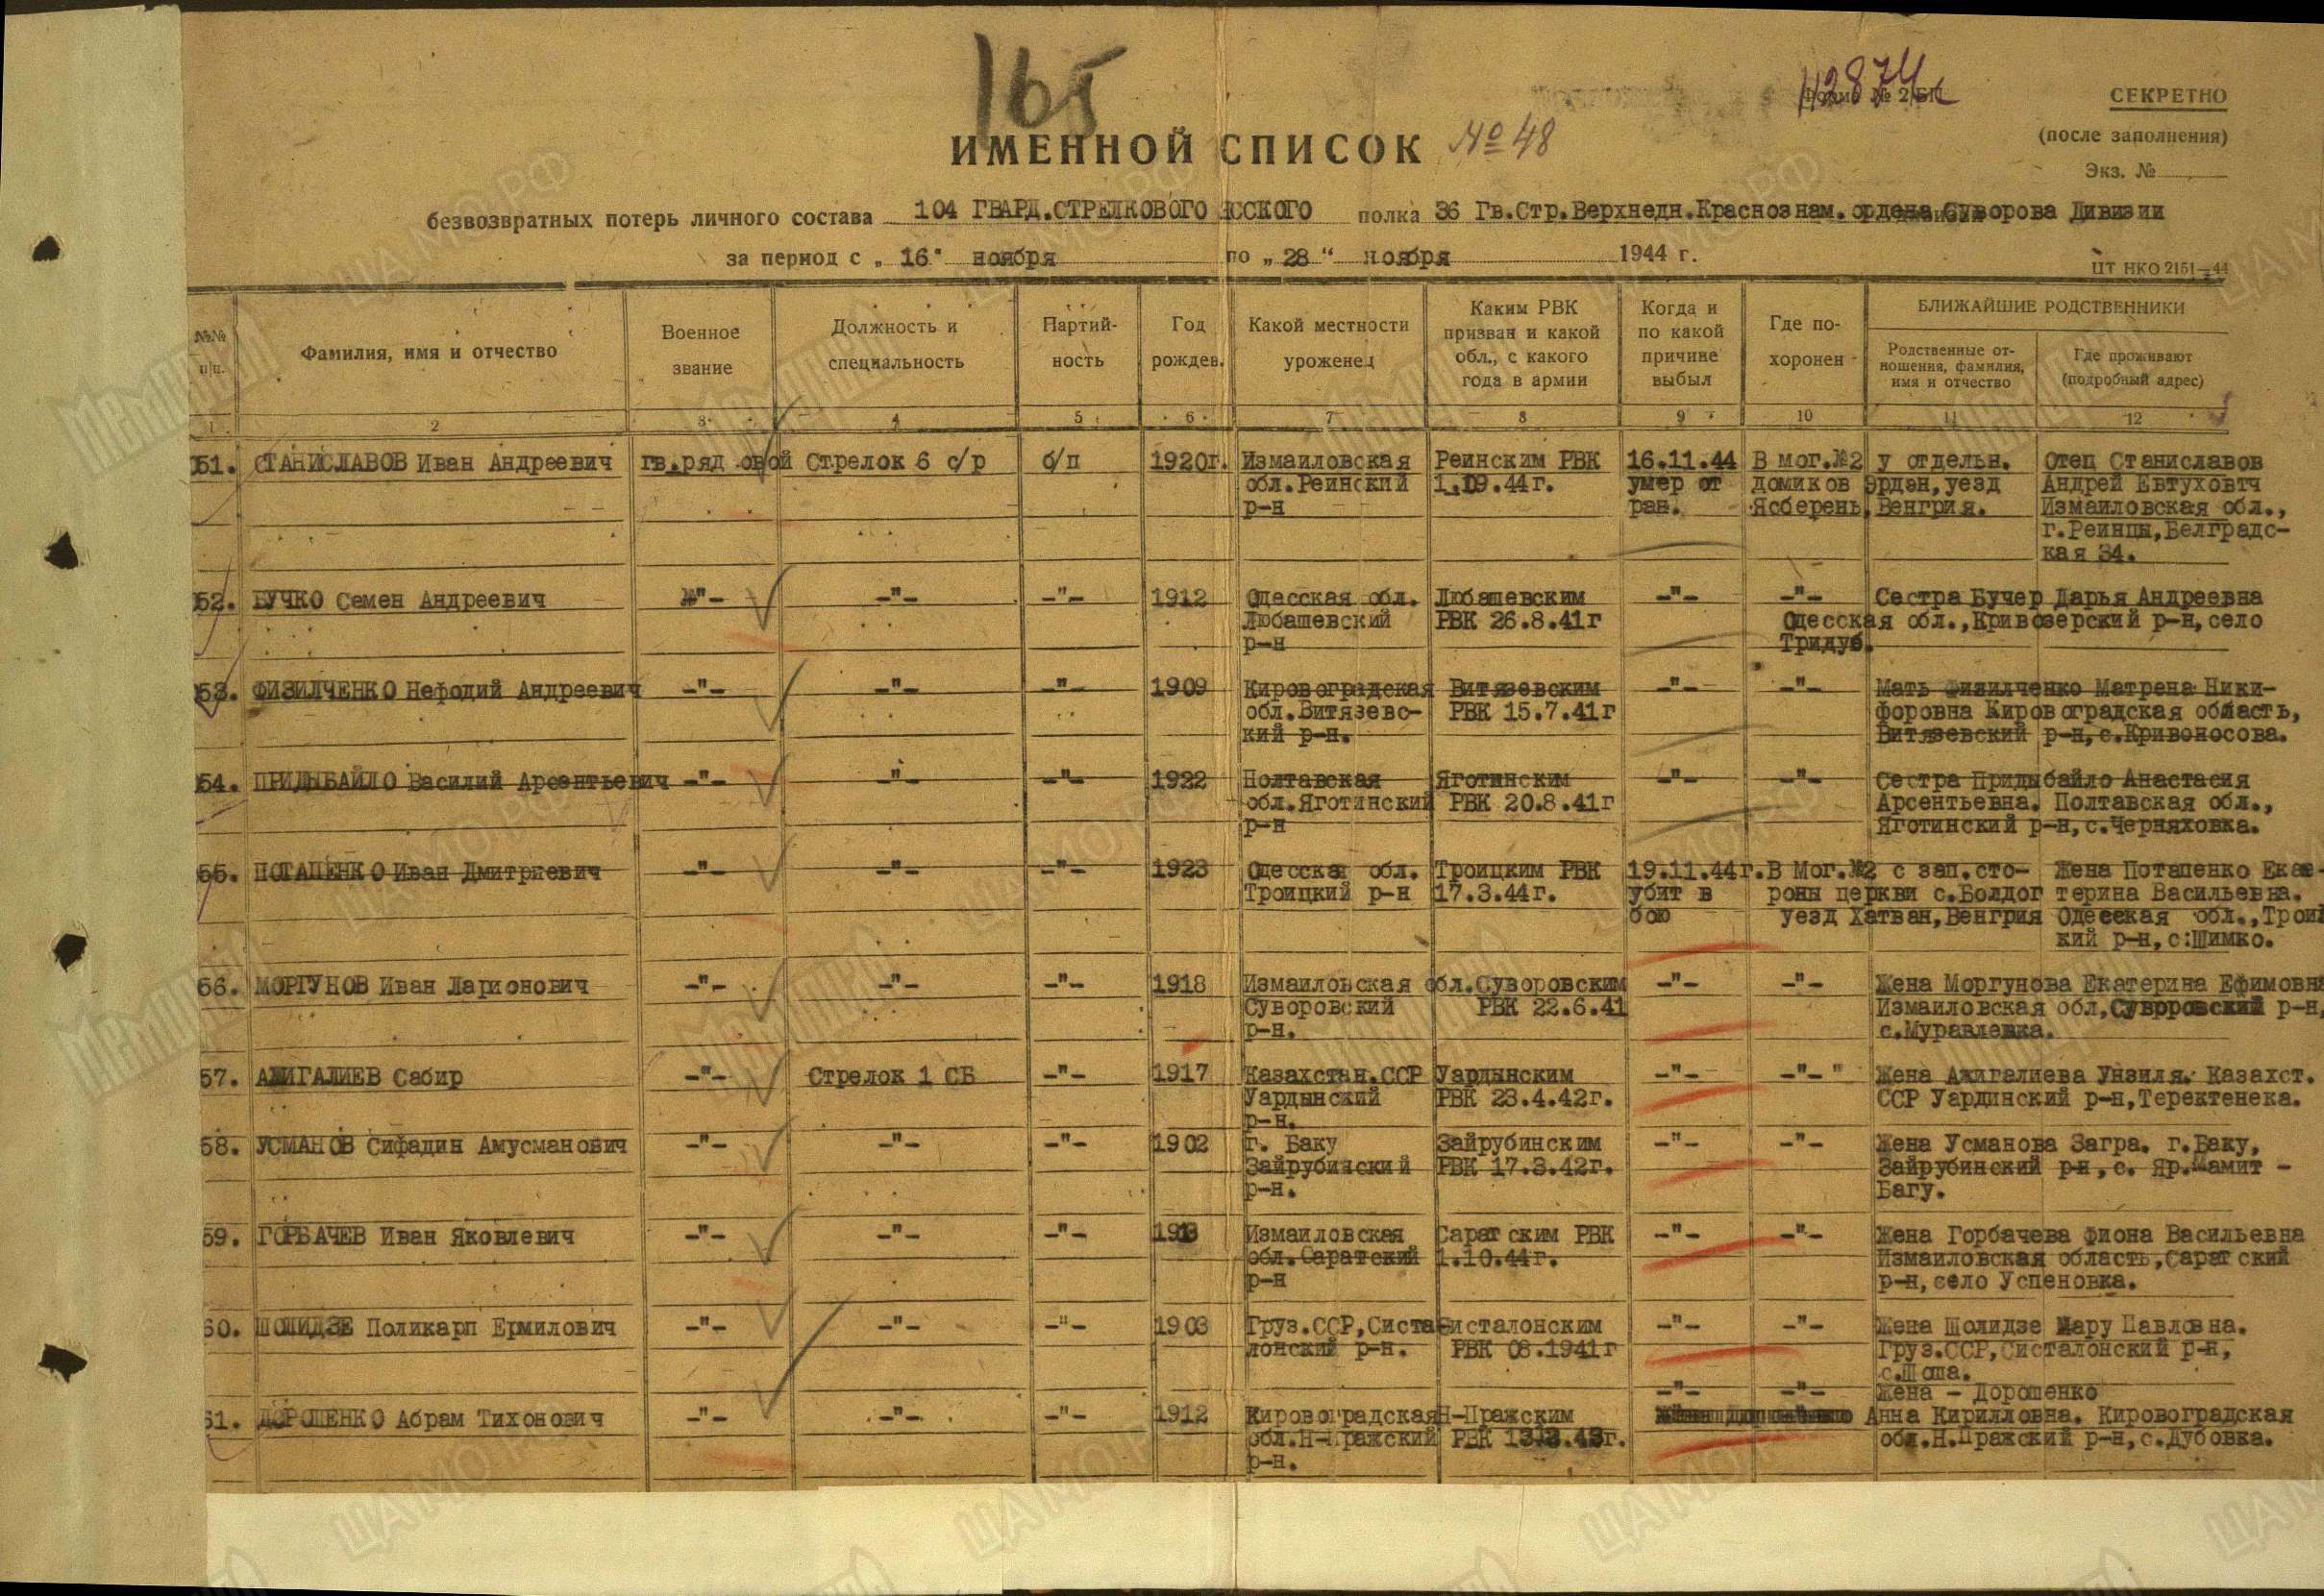 165
42874
Форма № 2/БП
СЕКРЕТНО
(после заполнения)
Экз. №
ИМЕННОЙ СПИСОК №48
безвозвратных потерь личного состава 104 ГВАРД.СТРЕЛКОВОГО ЯССКОГО полка 36 Гв.Стр.Верхнедн.Краснознам.ордена Суворова Дивизии
за период с „ 16" ноября по „ 28 " ноября 1944 г.
ЦТ НКО 2151—44
№№ п/п.
Фамилия, имя и отчество
Военное звание
Должность и специальность
Партий- ность
Год рождев.
Какой местности уроженец
Каким РВК призван и какой обл., с какого года в армии
Когда и по какой причине выбыл
Где по- хоронен
БЛИЖАЙШИЕ РОДСТВЕННИКИ
Родственные от- ношения, фамилия, имя и отчество
Где проживают (подробный адрес)
1 2 3 4 5 6 7 8 9 10 11 12
51. СТАНИСЛАВОВ Иван Андреевич гв.ряд овой Стрелок 6 с/р б/п 1920г. Измаиловская Реинским РВК 16.11.44 В мог.№2 у отдельн. Отец Станиславов
обл.Реинский 1.09.44г. умер от домиков Эрдэн,уезд Андрей Евтуховтч
р-н ран. Ясберень,Венгрия. Измаиловская обл.,
г.Реинцы,Белградс-
кая 34.
52. БУЧКО Семен Андреевич -"- -"- -"- 1912 Одесская обл. Любашевским -"- -"- Сестра Бучер Дарья Андреевна
Любашевский РВК 26.8.41г Одесская обл.,Кривозерский р-н,село
р-н Тридуб.
53. ФИЗИЛЧЕНКО Нефодий Андреевич -"- -"- -"- 1909 Кировоградская Витязевским -"- -"- Мать Физилченко Матрена Ники-
обл.Витязевс- РВК 15.7.41г форовна Кировоградская область,
кий р-н. Витязевский р-н,с.Кривоносова.
54. ПРИДЫБАЙЛО Василий Арсентьевич -"- -"- -"- 1922 Полтавская Яготинским -"- -"- Сестра Придыбайло Анастасия
обл.Яготинский РВК 20.8.41г Арсентьевна. Полтавская обл.,
р-н Яготинский р-н,с.Черняховка.
55. ПОТАПЕНКО Иван Дмитриевич -"- -"- -"- 1923 Одесская обл. Троицким РВК 19.11.44г. В Мог.№2 с зап.сто- Жена Потапенко Екае-
Троицкий р-н 17.3.44г. убит в роны церкви с.Болдог терина Васильевна.
бою уезд Хатван,Венгрия Одесская обл.,Троиц
кий р-н,с:Шимко.
56. МОРГУНОВ Иван Ларионович -"- -"- -"- 1918 Измаиловская обл.Суворовским -"- -"- Жена Моргунова Екатерина Ефимовна
Суворовский РВК 22.6.41 Измаиловская обл,Суворовский р-н,
р-н. с.Муравлевка.
57. АЖИГАЛИЕВ Сабир -"- Стрелок 1 СБ -"- 1917 Казахстан.ССР Уардынским -"- -"- " Жена Ажигалиева Унзиля. Казахст.
Уардынский РВК 23.4.42г. ССР Уардинский р-н,Теректенека.
р-н.
58. УСМАНОВ Сифадин Амусманович -"- -"- -"- 1902 г. Баку Зайрубинским -"- -"- Жена Усманова Загра. г.Баку,
Зайрубинский РВК 17.3.42г. Зайрубинский рн,с. Яр.Мамит -
р-н. Багу.
59. ГОРБАЧЕВ Иван Яковлевич -"- -"- -"- 1913 Измаиловская Саратским РВК -"- -"- Жена Горбачева фиона Васильевна
обл.Саратский 1.10.44г. Измаиловская область,Саратский
р-н р-н,село Успеновка.
60. ШОЛИДЗЕ Поликарп Ермилович -"- -"- -"- 1903 Груз.ССР,Систа Систалонским -"- -"- Жена Шолидзе Мару Павловна.
лонский р-н. РВК 08.1941г Груз.ССР,Систалонский р-н,
с.Шоша.
-"- -"- Жена - Дорошенко
61. ДОРОШЕНКО Абрам Тихонович -"- -"- -"- 1912 Кировоградская Н-Пражским Анна Кирилловна. Кировоградская
обл.Н-Пражский РВК обл.Н.Пражский р-н,с.Дубовка.
р-н.